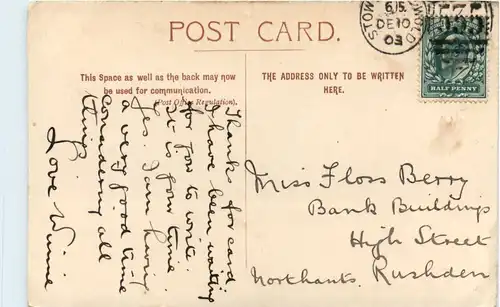 POST CARD.
This Space as well as the back may now
be used for communication.
(Post Office Regulation).
THE ADDRESS ONLY TO BE WRITTEN
HERE.
STOW
WOLD
615
DE 10
03
HALF PENNY
Thanks for card
I have been waiting
for you to write.
It is your time.
Yes. I am having
a very good time
considering all
things
Love Winnie
Miss Floss Berry
Bank Buildings
High Street
Northants. Rushden